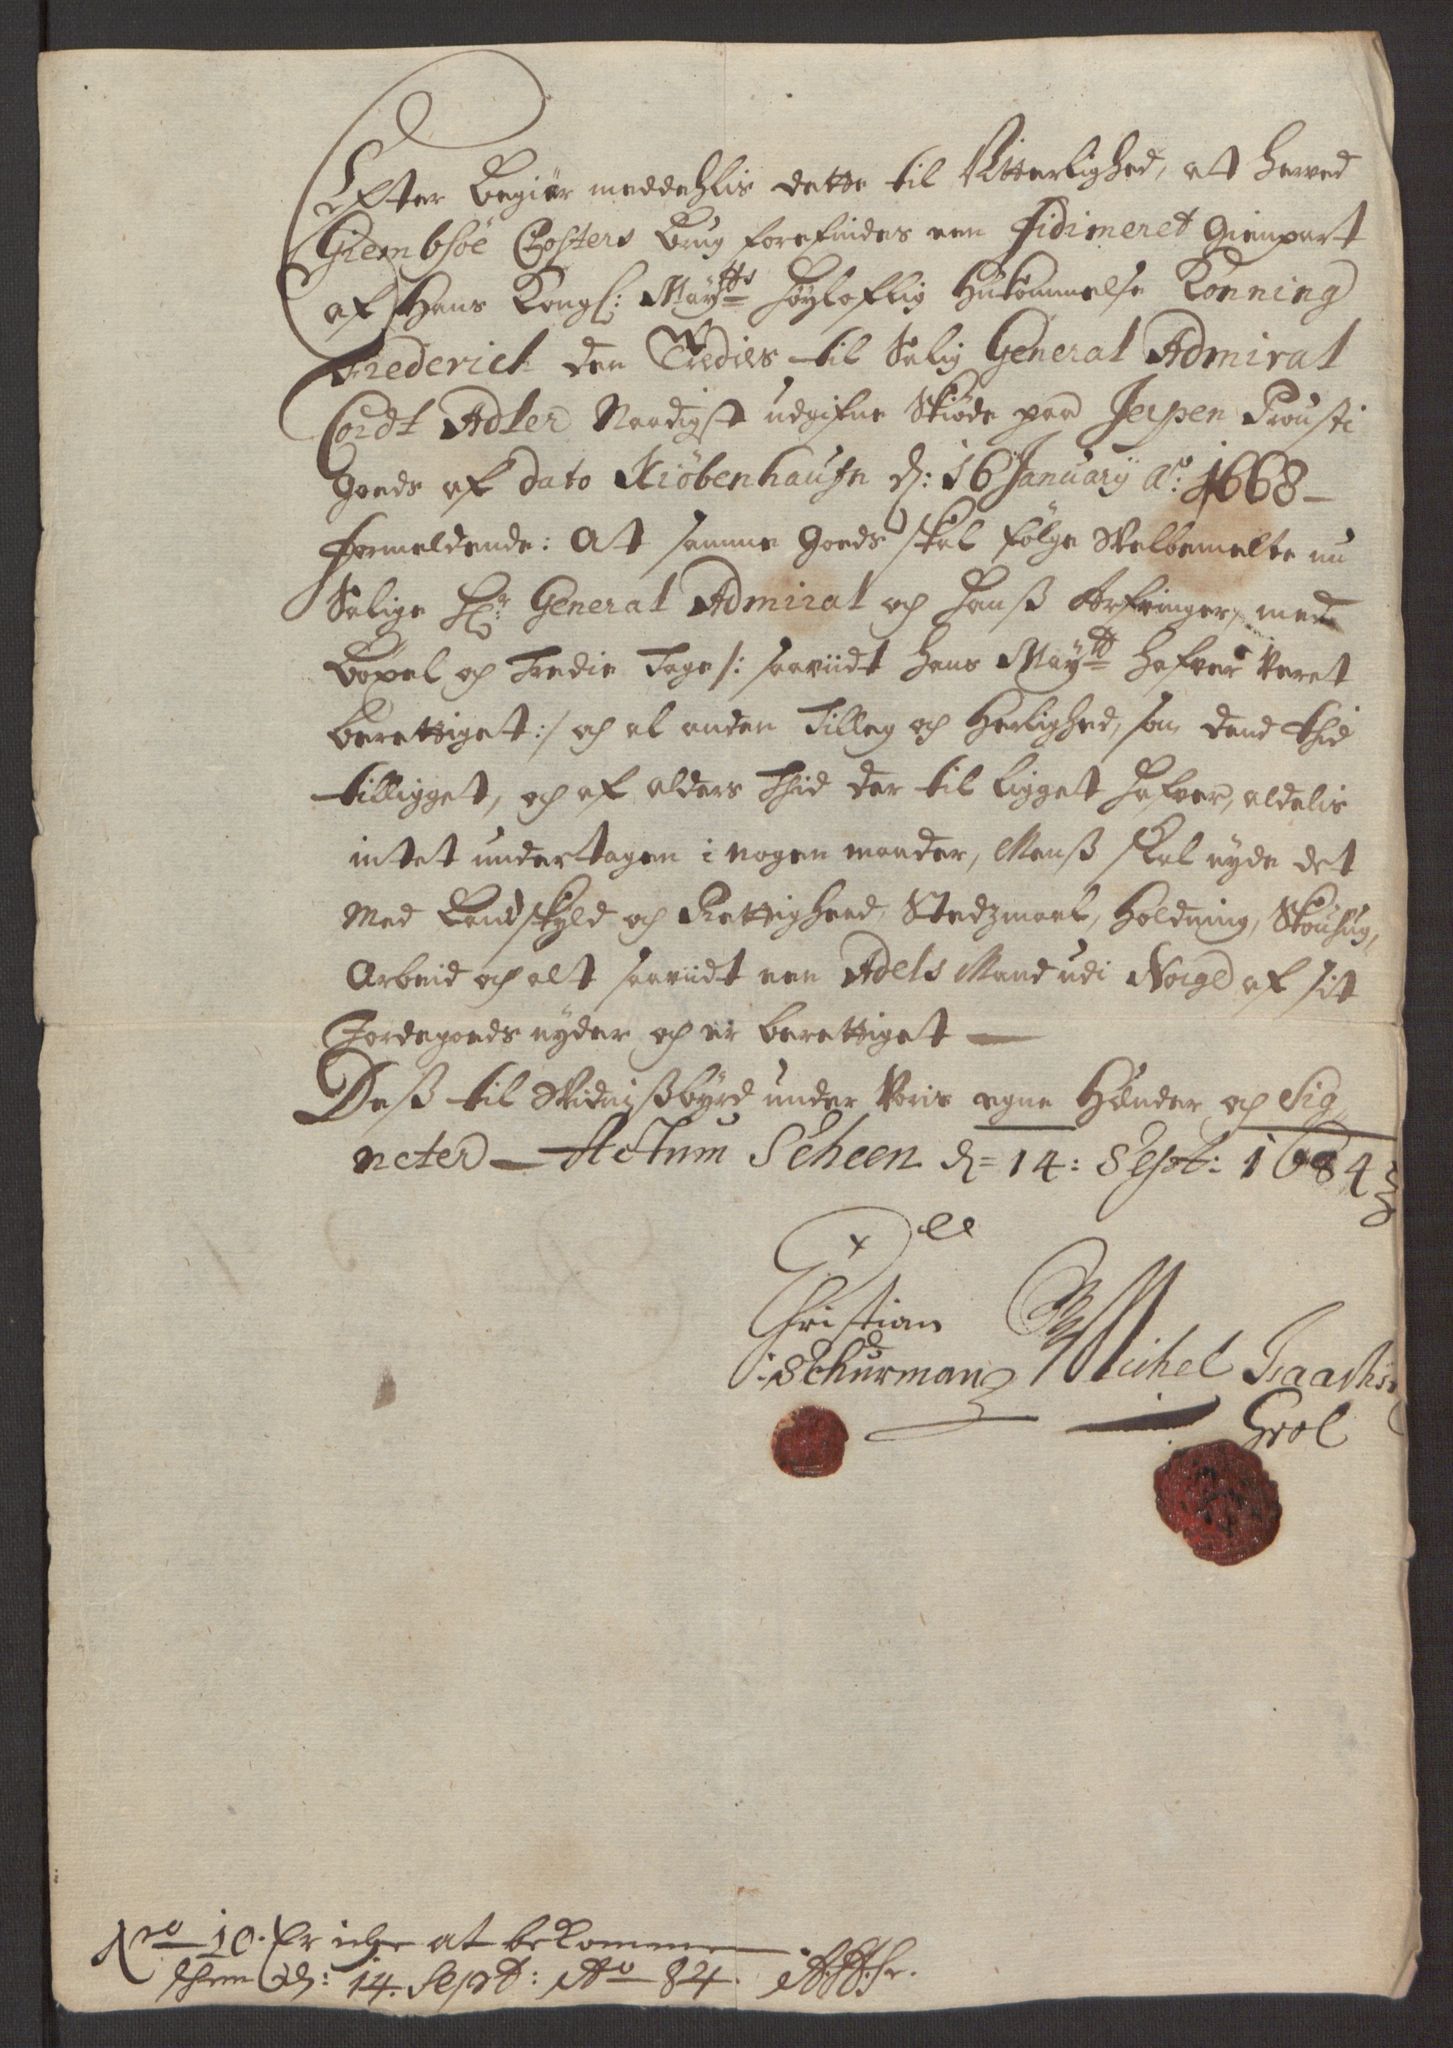 Efter Begiær meddehlis dette til Vitterlighed, att herved
Giembsøe Closters Brug forefindes een fidimeret Gienpart
af Hans Kongl: Maÿtts Høyloflig Hukommelse Konning
Frederick den Tredies til Salig General Admiral
Cordt Adler Naadigst udgifne Skiøde paa Jeipen Prousti
Goeds af dato Kiöbenhaufn d: 16 Januarÿ Ao: 1668 –
formeldende: At samme Goeds skal følge Velbemelte nu
Salige Hr: General Admiral och Hanß Arfvinger, med
Boxel och Tredie Tage /: saaviidt Hans Maÿtt hafver veret
berettiget :/ och al anden Tilleg och Herlighed, som dend Thid
tilligget, och af alders Thid der til ligget hafver, aldelis
intet undertagen i nogen maader, Menß skal nyde det
Med Landskyld och Rettigheed, Stedzmaal, Holdning, Skoufhug,
Arbeid och alt saaviidt een Adels Mand udi Norge af sit
Jordegoeds nyder och er berettiget —
Deß til Vidnißbyrd under Voris egne Hænder och Sig,,
neter – Actum Scheen d= 14: Sept: 1684
Christian
Schurman Michel Isachs:
Grol
Nro 10. Er iche at bekomme
Scheen d: 14. Sept: Ao 84.